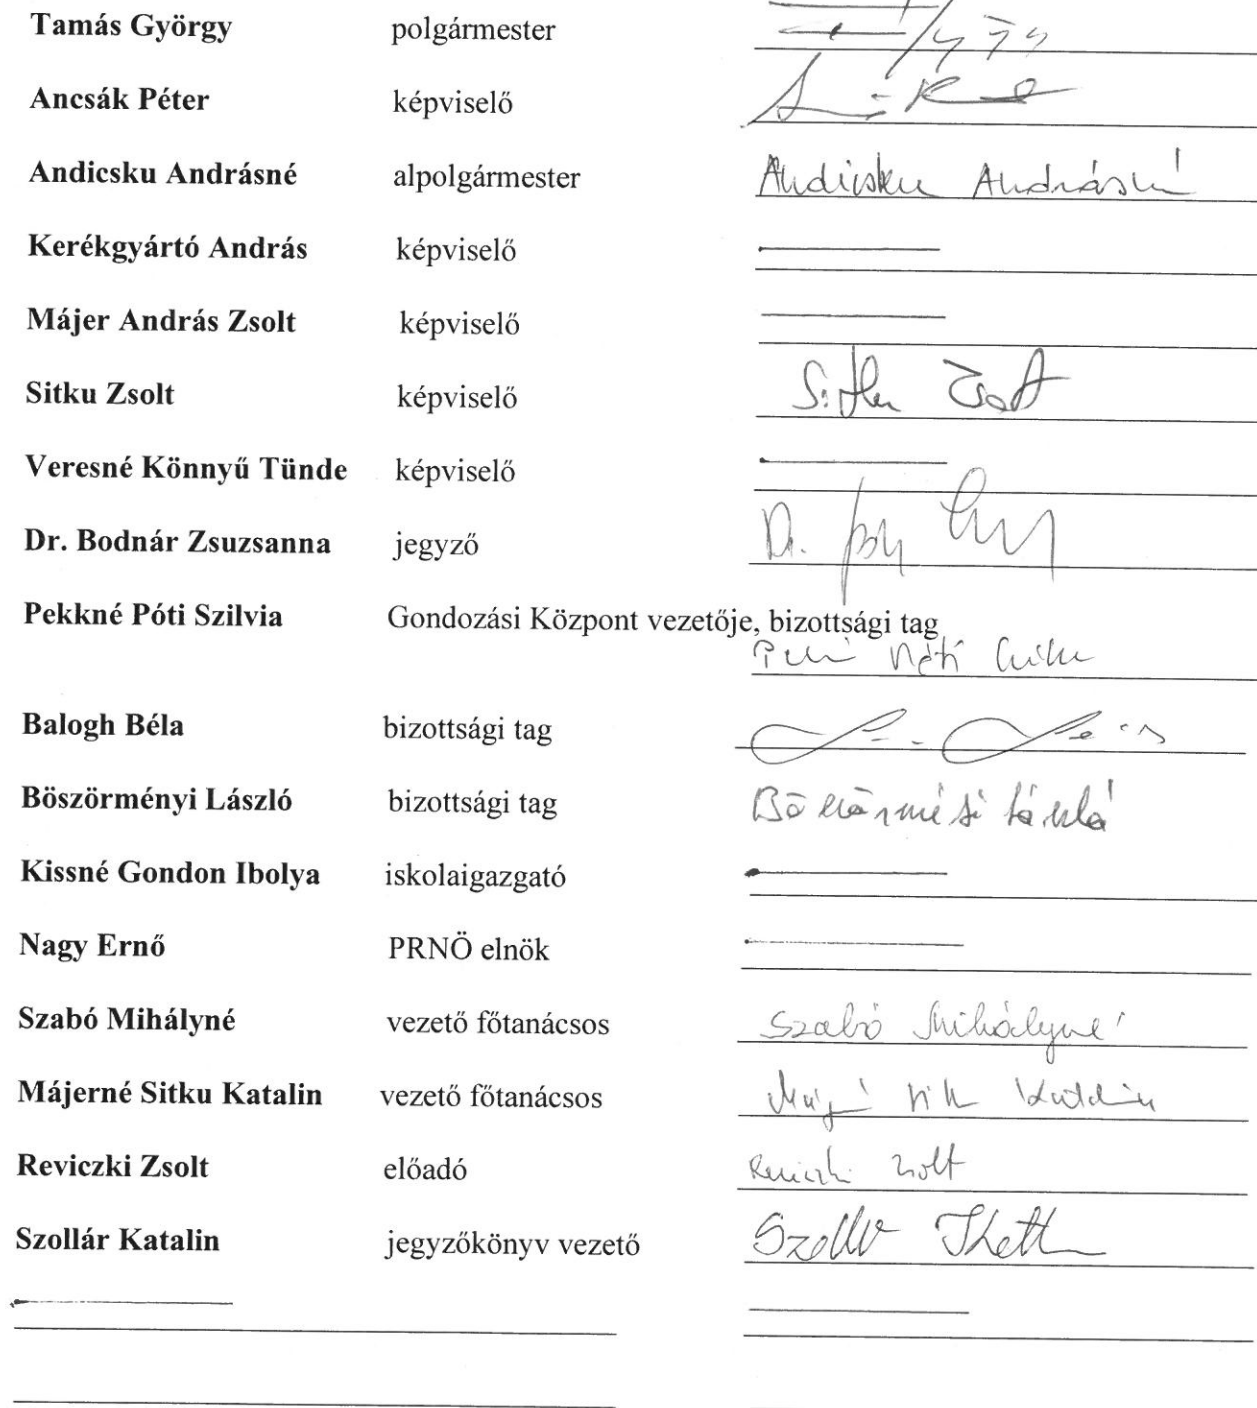 Tamás György polgármester
Ancsák Péter képviselő
Andicsku Andrásné alpolgármester Andicsku Andrásné
Kerékgyártó András képviselő
Májer András Zsolt képviselő
Sitku Zsolt képviselő Sitku Zsolt
Veresné Könnyű Tünde képviselő
Dr. Bodnár Zsuzsanna jegyző Dr.
Pekkné Póti Szilvia Gondozási Központ vezetője, bizottsági tag
Balogh Béla bizottsági tag
Böszörményi László bizottsági tag Böszörményi László
Kissné Gondon Ibolya iskolaigazgató
Nagy Ernő PRNÖ elnök
Szabó Mihályné vezető főtanácsos Szabó Mihályné
Májerné Sitku Katalin vezető főtanácsos Katalin
Reviczki Zsolt előadó Reviczki Zsolt
Szollár Katalin jegyzőkönyv vezető